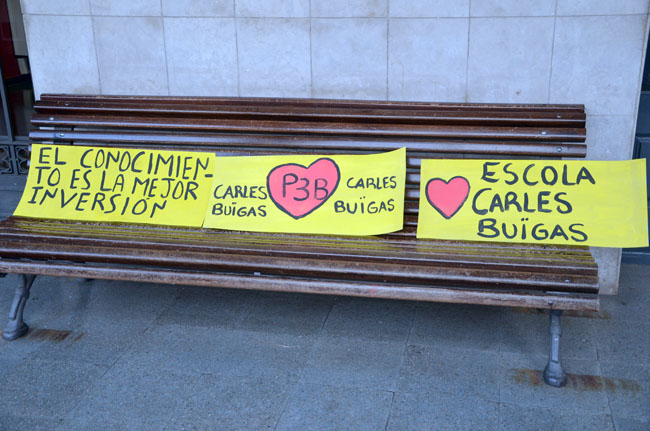 EL CONOCIMIEN-
TO ES LA MEJOR
INVERSIÓN
CARLES
BUÏGAS
P3B
CARLES
BUÏGAS
ESCOLA
CARLES
BUÏGAS